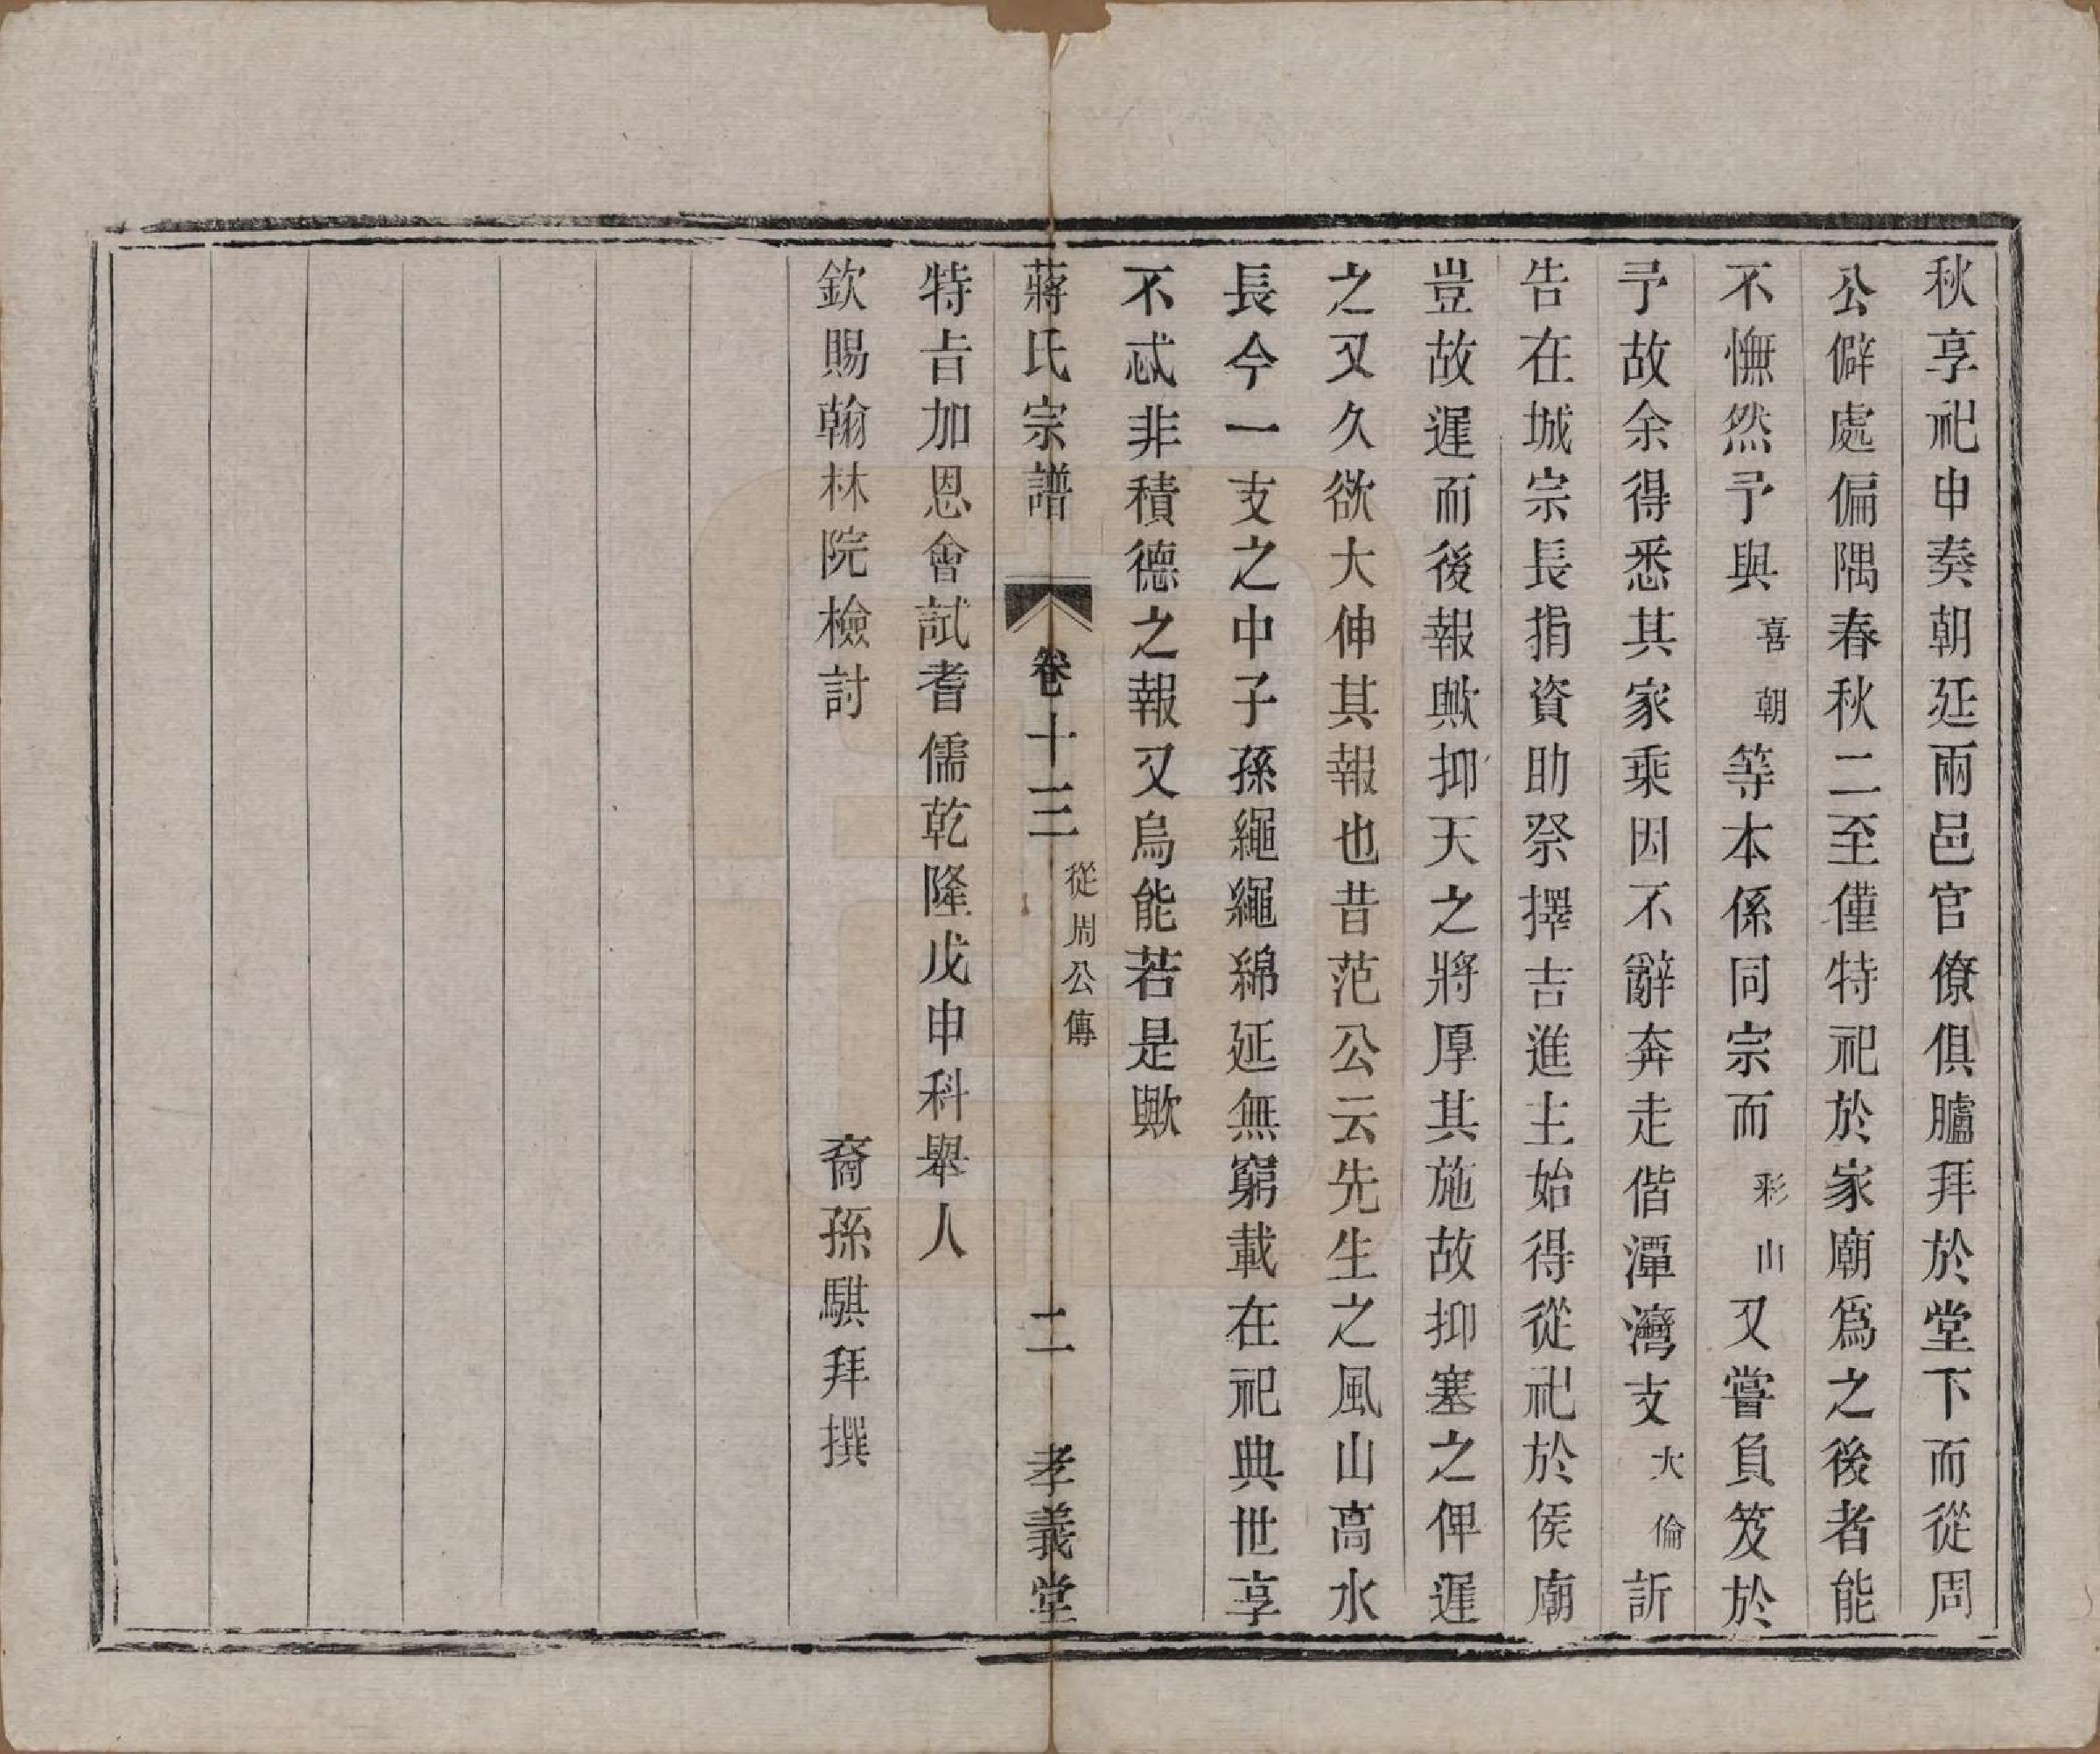 秋享祀申奏朝廷兩邑官僚俱臚拜於堂下而從周
公僻處偏隅春秋二至僅特祀於家廟爲之後者能
不憮然予與喜朝等本係同宗而彩山又嘗負笈於
予故余得悉其家乘因不辭奔走偕潭灣支大倫訢
告在城宗長捐資助祭擇吉進主始得從祀於侯廟
豈故遲而後報歟抑天之將厚其施故抑塞之俾遲
之又久欲大伸其報也昔范公云先生之風山高水
長今一支之中子孫繩繩綿延無窮載在祀典世享
不忒非積德之報又烏能若是歟
蔣氏宗譜 卷十三 從周公傳 二 孝義堂
特旨加恩會試耆儒乾隆戊申科舉人
欽賜翰林院檢討 裔孫騏拜撰